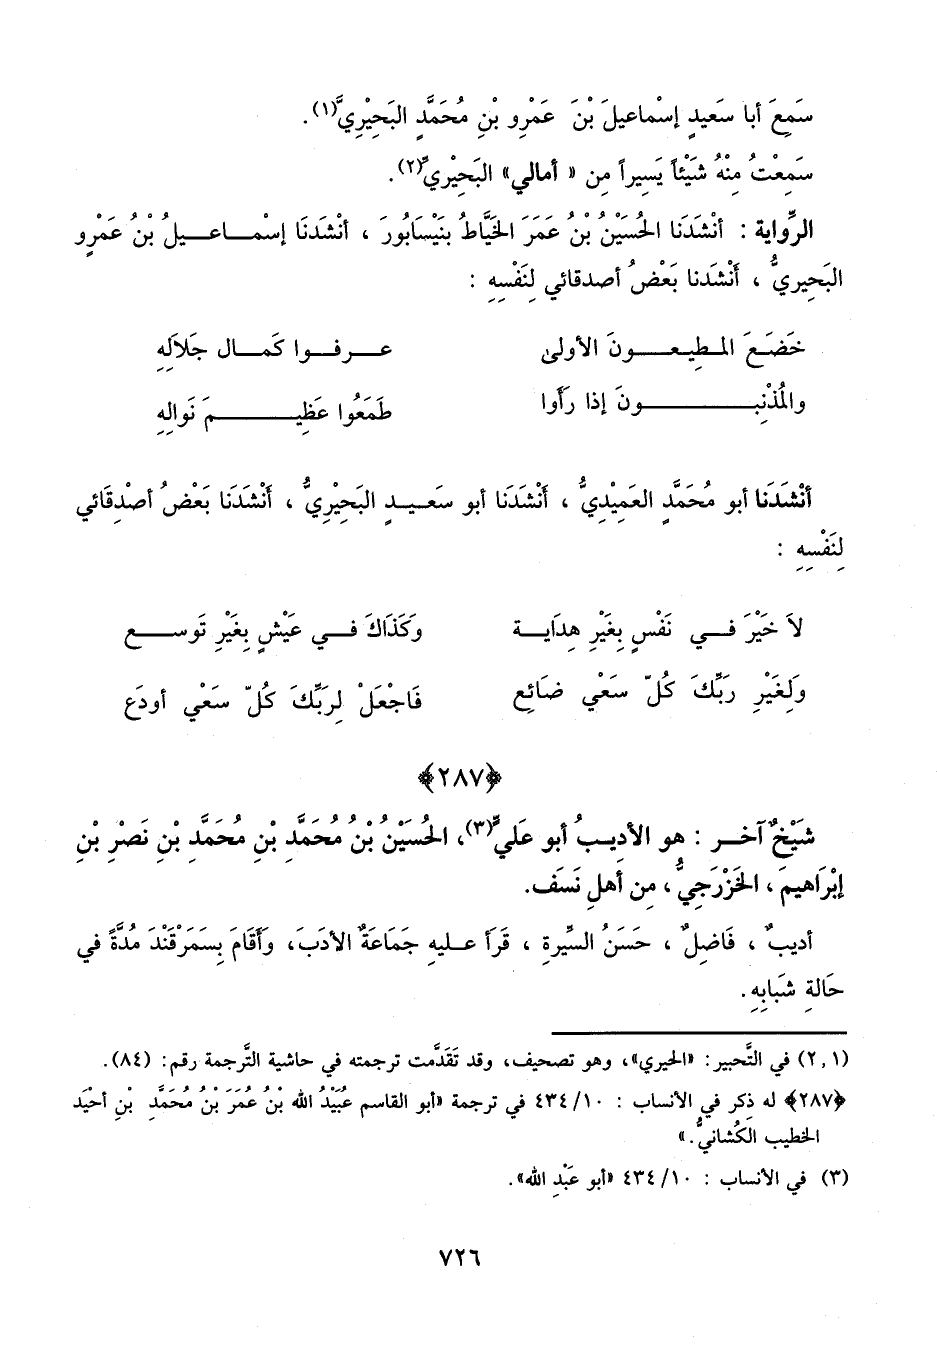 سَمِعَ أبا سَعيدٍ إسْماعيلَ بْنَ عَمْرو بْنِ مُحَمَّدٍ البَحِيْرِيَّ(١).
سَمِعْتُ مِنْهُ شَيْئاً يَسِيراً مِن « أمالي» البَحِيْرِيِّ(٢).
الرِّواية : أنْشَدَنَا الحُسَيْنُ بْنُ عمَرَ الخَيَّاطُ بنَيْسَابُورَ ، أنْشَدَنَا إسْماعيلُ بْنُ عَمْرٍو
البَحِيريُّ ، أَنْشَدنا بَعْضُ أصدقائي لِنَفْسِهِ :
خَضَعَ المطِيعونَ الأولىٰ عرفوا كَمال جَلاَلِهِ
والمُذْنِبونَ إذا رَأَوا طَمَعُوا عَظِيمَ نَوالِهِ
أنْشَدَنَا أبو مُحَمَّدٍ العَمِيْدِيُّ ، أَنْشَدَنا أبو سَعيدٍ البَحِيْرِيُّ ، أَنْشَدَنَا بَعْضُ أصْدِقَائي
لِنَفْسِهِ :
لاَ خَيْرَ في نَفْسٍ بِغَيْرِ هِدَايةٍ وَكَذَاكَ في عَيْشٍ بِغَيْرِ تَوسع
وَلِغَيْرِ رَبِّكَ كُلّ سَعْي ضَائِع فَاجْعَلْ لِرَبِّكَ كُلّ سَعْي أودَع
﴿٢٨٧﴾
شَيْخٌ آخر : هو الأديبُ أبو عَليٍّ(٣)، الحُسَيْنُ بْنُ مُحَمَّدِ بْنِ مُحَمَّدِ بْنِ نَصْرِ بْنِ
إبْرَاهيمَ ، الخَزْرَجِيُّ ، مِن أهلِ نَسَف.
أديبٌ ، فَاضِلٌ ، حَسَنُ السِّيرةِ ، قَرَأَ عليهِ جَمَاعَةٌ الأدَبَ، وَأقَامَ بِسَمَرْقَنْدَ مُدَّةً في
حَالةِ شَبَابِهِ.
(٢,١) في التَّحبير: «الحيري»، وهو تصحيف، وقد تَقَدَّمت ترجمته في حاشية التَّرجمة رقم: (٨٤).
﴿٢٨٧﴾ له ذِكر في الأنساب : ١٠/ ٤٣٤ في ترجمة «أبو القاسم عُبَيْدُ الله بْنُ عُمَرَ بْنُ مُحَمَّدَ بْنِ أحيَد
الخطيب الكُشانيُّ.»
(٣) في الأنساب : ١٠/ ٤٣٤ «أبو عَبْدِ الله».
٧٢٦